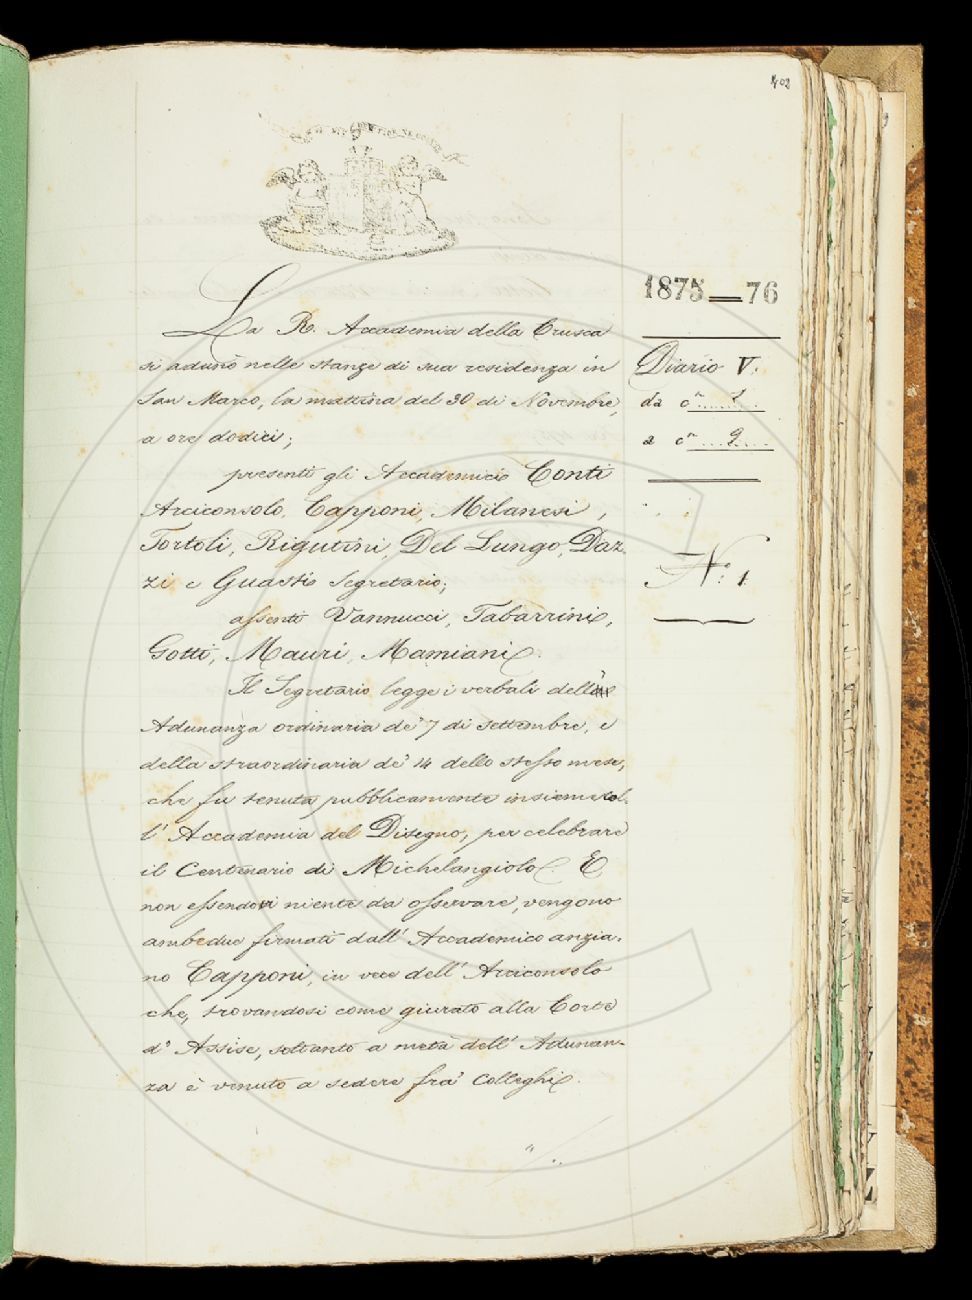 402
1875=76
Diario V.
da cª ... 1 ...
a cª ... 9 ...
Nº. 1
La R. Accademia della Crusca
si adunò nelle stanze di sua residenza in
San Marco, la mattina del 30 di Novembre,
a ore dodici;
presenti gli Accademici Conti
Arciconsolo, Capponi, Milanesi,
Tortoli, Rigutini, Del Lungo, Daz-
zi e Guasti Segretario;
assenti Vannucci, Tabarrini,
Gotti, Mauri, Mamiani.
Il Segretario legge i verbali dell'
Adunanza ordinaria de' 7 di settembre, e
della straordinaria de' 14 dello stesso mese,
che fu tenuta pubblicamente insieme col-
l'Accademia del Disegno, per celebrare
il Centenario di Michelangiolo. E
non essendovi niente da osservare, vengono
ambedue firmati dall'Accademico anzia-
no Capponi, in vece dell'Arciconsolo
che, trovandosi come giurato alla Corte
d'Assise, soltanto a metà dell'Adunan-
za è venuto a sedere fra' Colleghi.